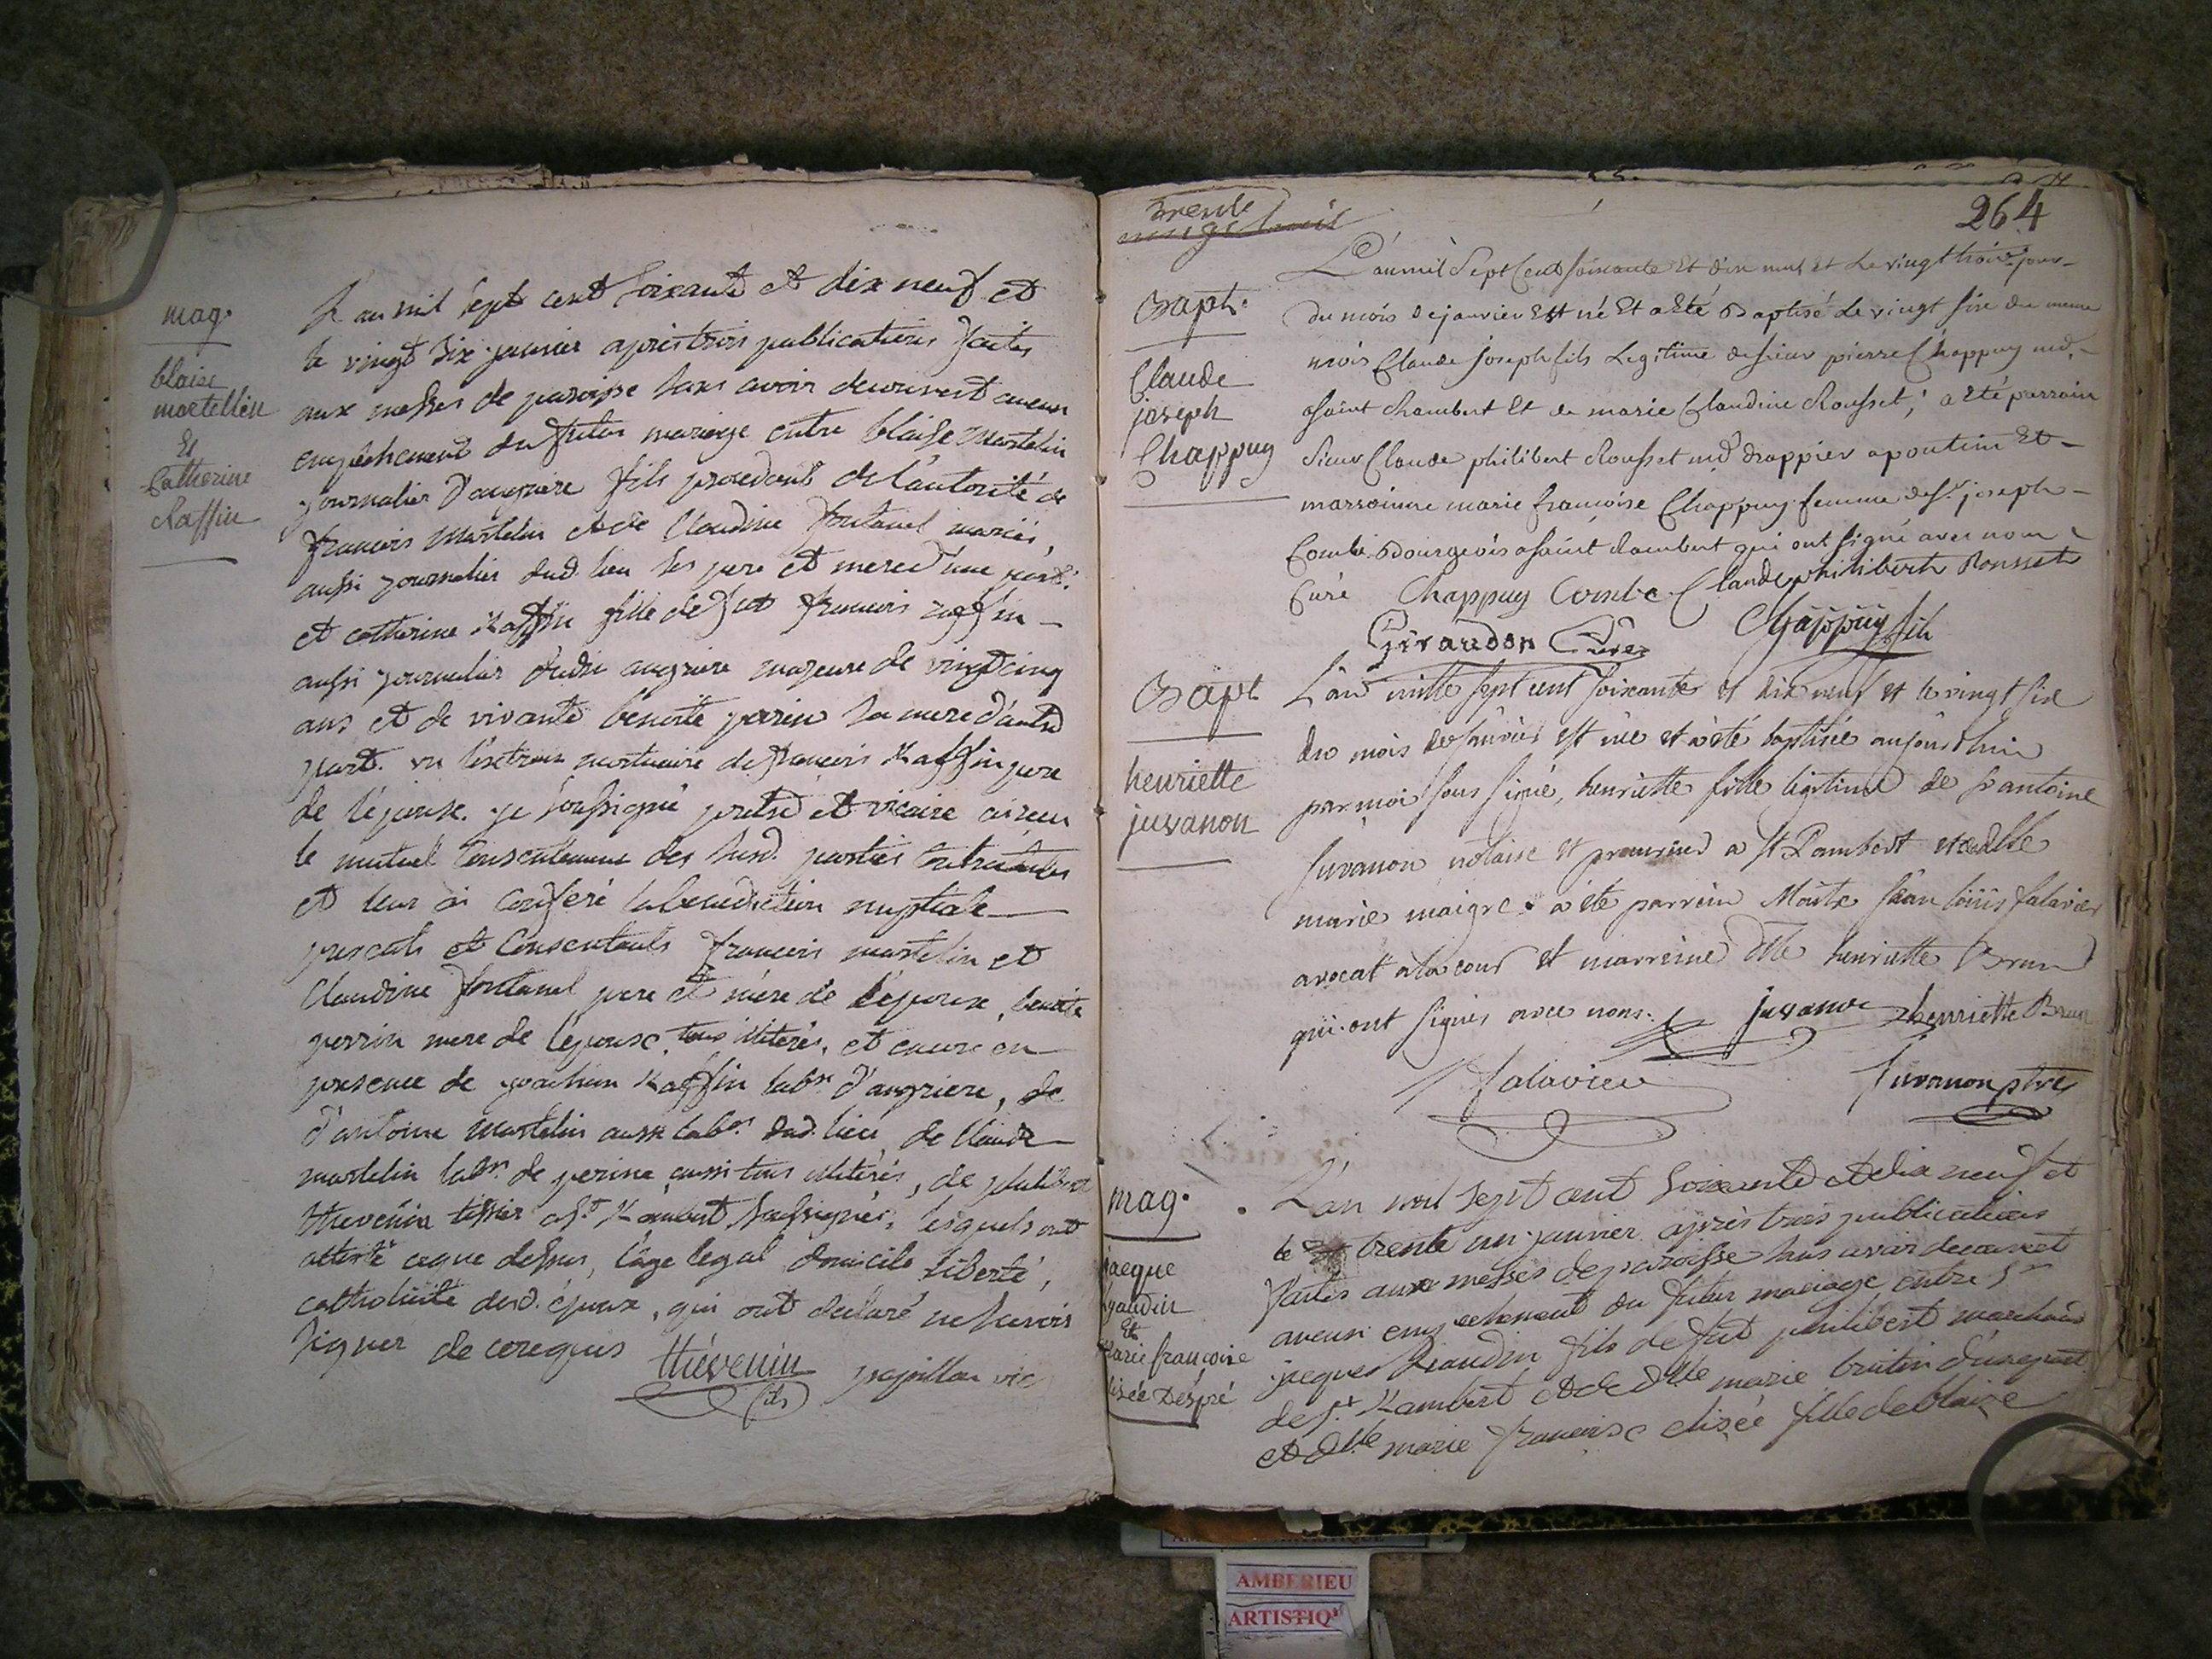 mag.
blaise
martellin
Et
Catherine
Raffin
L'an mil sept cent soixante et dix neuf et
le vingt six janvier apres trois publications faites
aux messes de paroisse sans avoir decouvert aucun
empechement du futur mariage entre blaise Martelin
journalier d'angriere fils procedant de l'autorité de
francois Martelin et de Claudine fontanel mariés,
aussi journalier dud. lieu ses pere et mere d'une part.
et catherine Raffin fille de feu francois raffin
aussi journalier dudit angriere majeure de vingt cinq
ans et de vivante benoite perrin sa mere d'autre
part. vu l'extrait mortuaire de francois Raffin pere
de l'épouse. je soussigné pretre et vicaire ai recu
le mutuel consentement des susd. parties
et leur ai conferé la benediction nuptiale
presents et consentants francois martelin et
Claudine fontanel pere et mere de l'epoux, benoite
perrin mere de l'epouse, tous illiterés, et encore en
presence de joachim Raffin labr. d'angriere, de
d'antoine Martelin aussi labr. dud. lieu, de Claude
martelin labr. de perine aussi tous illiterés, de philibert
thevenin tissier a St. Rambert soussigné, lesquels ont
attesté ce que dessus, l'age legal domicile liberté,
catholicité desd. époux, qui ont declaré ne scavoir
signer de ce requis thévenin papillon vic
fils
trente
vingt huit
264
Bapt.
Claude
joseph
Chappuy
L'an mil sept cent soixante et dix neuf et le vingt trois jour
du mois de janvier est né et a eté Baptisé le vingt six du meme
mois Claude joseph fils Legitime de sieur pierre Chappuy md.
a saint Rambert et de marie Claudine Rousset; a eté parrain
sieur Claude philibert Rousset md. drappier a pontin et
marrainne marie francoise Chappuy femme de sr. joseph
Combe Bourgeois a saint Rambert qui ont signé avec nous
Curé Chappuy Combe Claude philiberth Rousset
Giraudon Curé Chappuy fils
Bapt
henriette
juvanon
L'an mille sept cent soixante et dix neuf et le vingt six
du mois de janvier est née et a été baptisée aujourd'hui
par moi sous signé, henriette fille légitime de sr antoine
Juvanon notaire et procureur a St Rambert et de dlle
marie maigre. a été parrein Maitre jean louis falavier
avocat a la cour et marreine Dlle henriette Brun
qui ont signés avec nous. juvanon henriette Brun
falavier Juvanon ptre
mag.
jacque
gaudin
Et
marie francoise
elisée Despré
L'an mil sept cent soixante et dix neuf et
le trente un janvier apres trois publications
faites aux messes de paroisse sans avoir decouvert
aucun empechement du futur mariage entre Sr
jacques Gaudin fils de feu philibert marchand
de St. Rambert et de dlle marie d'une part
et dlle marie francoise elisée fille de blaise
AMBERIEU
ARTISTIQ'